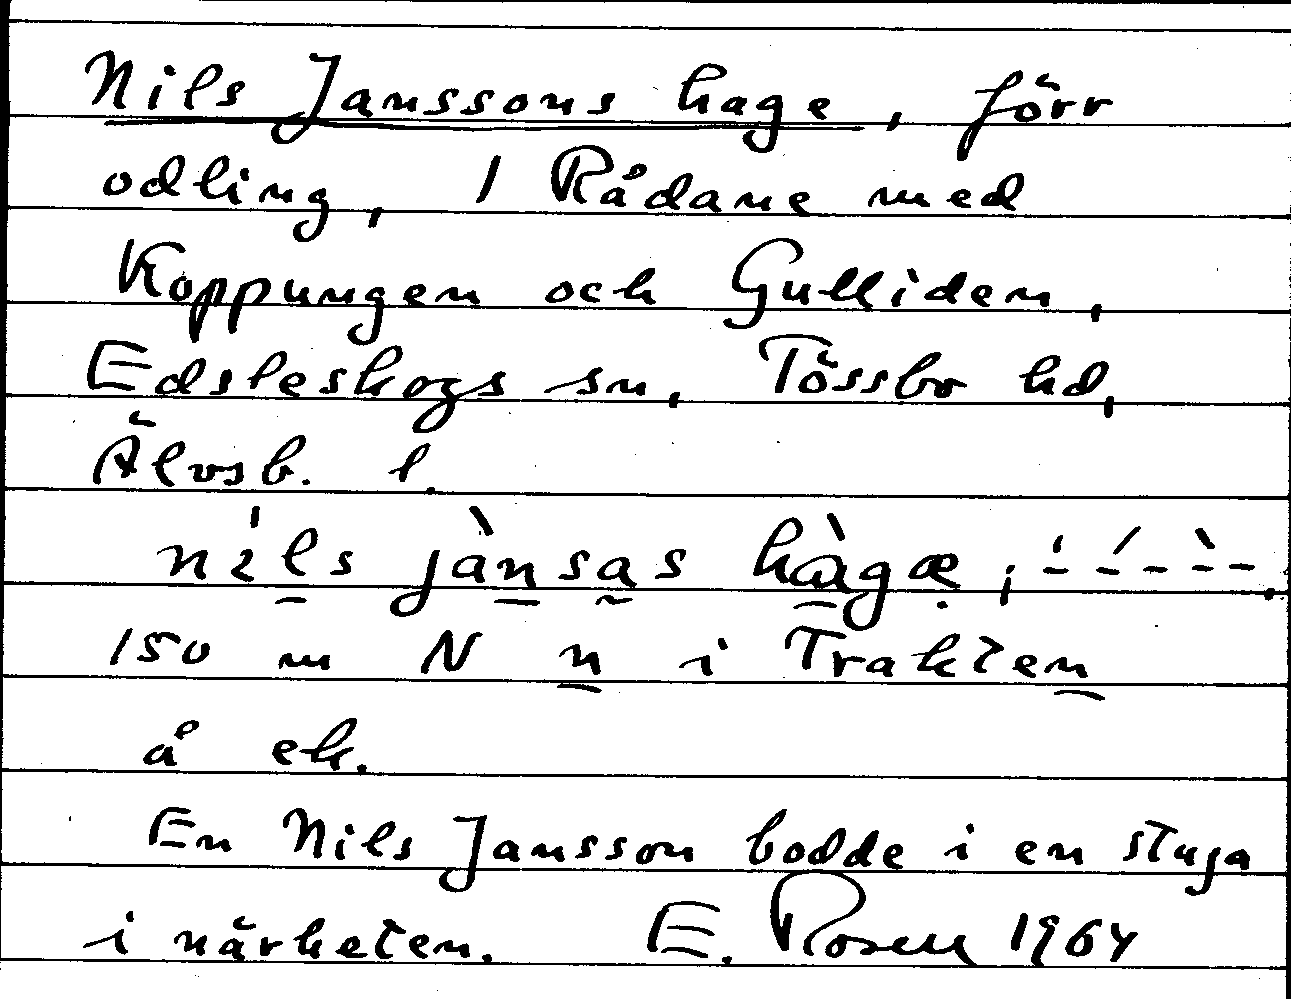 Nils Janssons hage, förr
odling, 1 Rådane med
Koppungen och Gulliden,
Edsleskogs sn, Tössbo hd,
Älvsb. l.
nils jànsas hàgæ ;
150 m N n i Trakten
å ek.
En Nils Jansson bodde i en stuga
i närheten. E. Rosell 1964